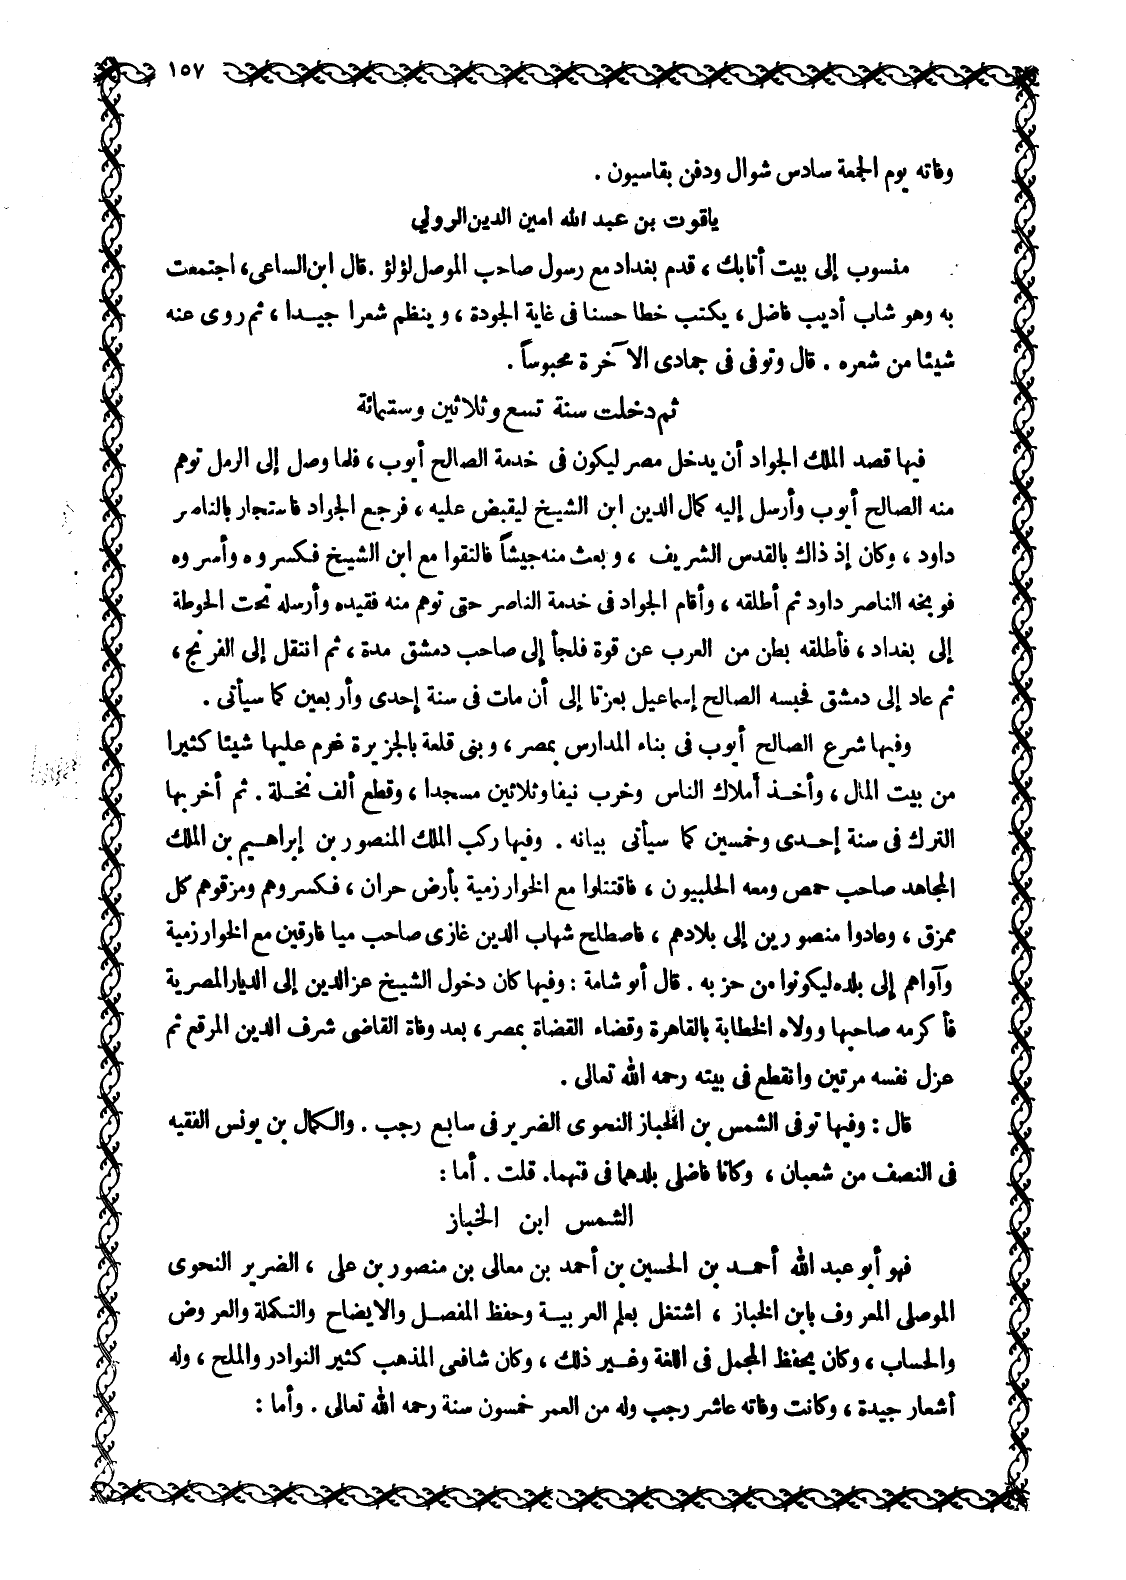 ١٥٧
وفاته يوم الجمعة سادس شوال ودفن بقاسيون .
ياقوت بن عبد الله امين الدين الرولي
منسوب إلى بيت أتابك ، قدم بغداد مع رسول صاحب الموصل لؤلؤ . قال ابن الساعى ، اجتمعت
به وهو شاب أديب فاضل ، يكتب خطا حسنا فى غاية الجودة ، وينظم شعرا جيدا ، ثم روى عنه
شيئا من شعره . قال وتوفى فى جمادى الآخرة محبوساً .
ثم دخلت سنة تسع وثلاثين وستمائة
فيها قصد الملك الجواد أن يدخل مصر ليكون فى خدمة الصالح أيوب ، فلما وصل إلى الرمل توهم
منه الصالح أيوب وأرسل إليه كمال الدين ابن الشيخ ليقبض عليه ، فرجع الجراد فاستجار بالناصر
داود ، وكان إذ ذاك بالقدس الشريف ، وبعث منه جيشاً فالتقوا مع ابن الشيخ فكسروه وأسروه
فوبخه الناصر داود ثم أطلقه ، وأقام الجواد فى خدمة الناصر حتى توهم منه فقيده وأرسله تحت الحوطة
إلى بغداد ، فأطلقه بطن من العرب عن قوة فلجأ إلى صاحب دمشق مدة ، ثم انتقل إلى الفرنج ،
ثم عاد إلى دمشق فحبسه الصالح إسماعيل بعزتا إلى أن مات فى سنة إحدى وأربعين كما سيأتى .
وفيها شرع الصالح أيوب فى بناء المدارس بمصر ، وبنى قلعة بالجزيرة غرم عليها شيئا كثيرا
من بيت المال ، وأخذ أملاك الناس وخرب نيفا وثلاثين مسجدا ، وقطع ألف نخلة . ثم أخربها
الترك فى سنة إحدى وخمسين كما سيأتى بيانه . وفيها ركب الملك المنصور بن إبراهيم بن الملك
المجاهد صاحب حمص ومعه الحلبيون ، فاقتتلوا مع الخوارزمية بأرض حران ، فكسروهم ومزقوهم كل
ممزق ، وعادوا منصورين إلى بلادهم ، فاصطلح شهاب الدين غازى صاحب ميا فارقين مع الخوارزمية
وآواهم إلى بلده ليكونوا من حزبه . قال أبو شامة : وفيها كان دخول الشيخ عز الدين إلى الديار المصرية
فأكرمه صاحبها وولاه الخطابة بالقاهرة وقضاء القضاة بمصر ، بعد وفاة القاضى شرف الدين المرقع ثم
عزل نفسه مرتين وانقطع فى بيته رحمه الله تعالى .
قال : وفيها توفى الشمس بن الخباز النحوى الضرير فى سابع رجب . والكمال بن يونس الفقيه
فى النصف من شعبان ، وكانا فاضلى بلدهما فى فنهما . قلت . أما :
الشمس ابن الخباز
فهو أبو عبد الله أحمد بن الحسين بن أحمد بن معالى بن منصور بن على ، الضرير النحوى
الموصلى المعروف بابن الخباز ، اشتغل بعلم العربية وحفظ المفصل والايضاح والتكملة والعروض
والحساب ، وكان يحفظ المجمل فى اللغة وغير ذلك ، وكان شافعى المذهب كثير النوادر والملح ، وله
أشعار جيدة ، وكانت وفاته عاشر رجب وله من العمر خمسون سنة رحمه الله تعالى . وأما :